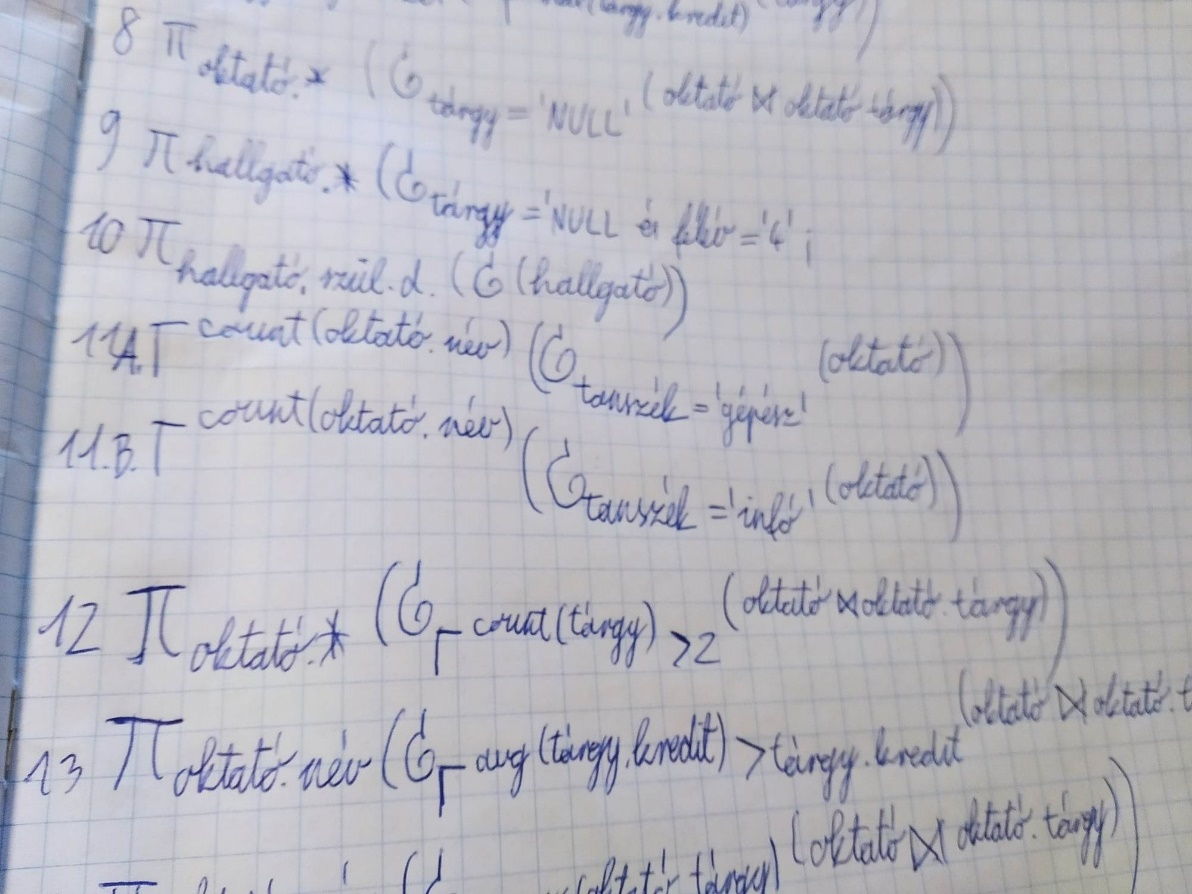 (tárgy.kredit)
8 π oktató.* (σ tárgy = 'NULL' (oktató ⋈ oktató tárgy))
9 π hallgató.* (σ tárgy = 'NULL és félév = '4' ;
10 π hallgató, szül.d. (σ (hallgató))
11A. Γ count(oktató.név) (σ tanszék = 'gépész' (oktató))
11.B. Γ count(oktató.név) (σ tanszék = 'infó' (oktató))
12 π oktató.* (σ Γ count(tárgy) >2 (oktató ⋈ oktató.tárgy))
13 π oktató.név (σ Γ avg (tárgy.kredit) > tárgy.kredit (oktató ⋈ oktató.t
(oktató.tárgy) (oktató ⋈ oktató.tárgy))